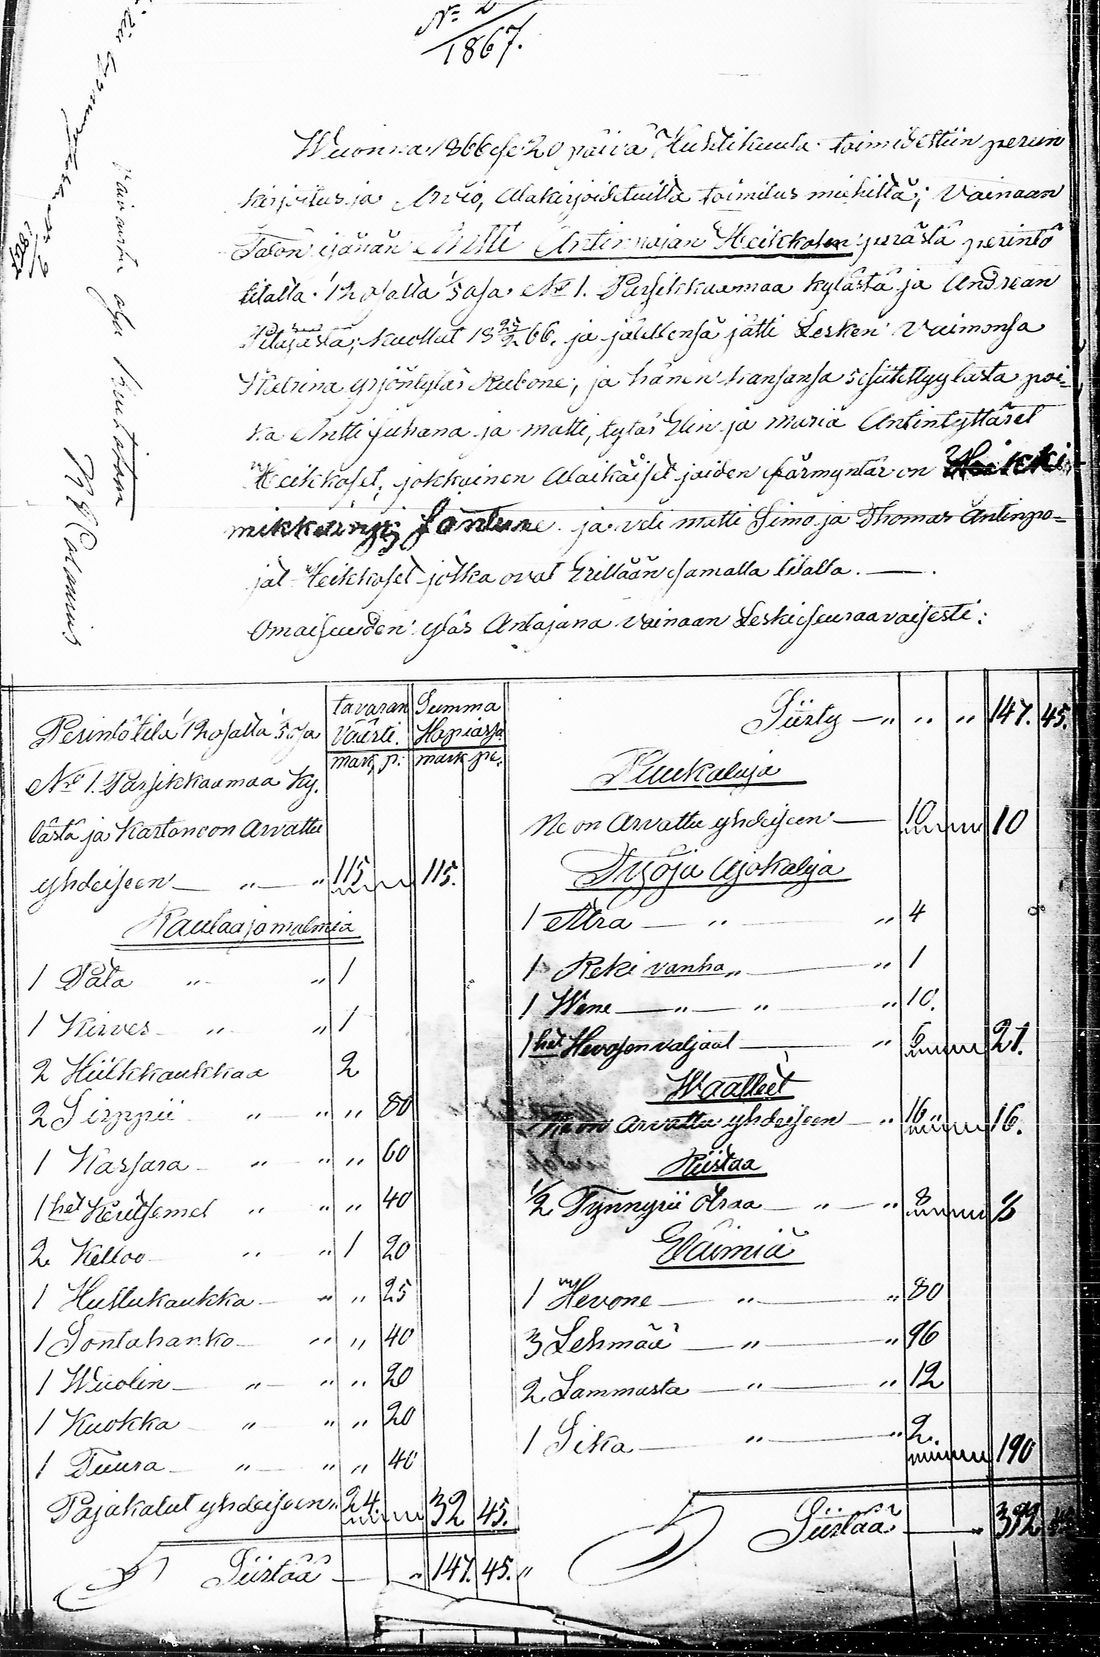 N:o 2
1867.
Wuonna 1866 se 20 päivä Huhtikuuta toimitettiin perun
kirjoitus ja Arvio, Allakirjoitetuilta toimitus miehiltä; Vainaan
Talon isänän Antti Antinpojan Heikkosen perästä perintö
tilalla 12 osalla 5 osa N:o 1. Parsikkaamaa kylästä ja Andrean
Pitäjästä; kuollut 18 66. ja jälellensä jätti Lesken Vaimonsa
Katrina Yrjöntytär Kubone; ja hänen kansansa poi=
ka Antti Juhana ja matti, tytär Elin ja Maria Antintyttäret
Heikkoset; jokkainen Alaikäiset joiden färmyntär on Heikki
mikkeinp: Jontune ja veli matti Simo ja Thomas Antinpo=
jat Heikkoset jotka ovat Erillään samalla tilalla. —
Omaisuuden ylös Antajana Vainaan Leski seuraavaisesti:
tavaran Väärti. Summa Hopiassa
mark, p: mark pe.
Perintö tila 12 osalla 5 osa
N:o 1. Parsikkaamaa Ky.
lästä ja Kartanoon Arvattu
yhdeiseen — " — " 115 115.
Rautaa ja malmia
1 Pata " " 1
1 Kirves " " 1
2 Hiilkkaukkaa 2
2 Sirppii " " " 80
1 Kassara " " " 60
1 het Keritsemet " " " 40
2 Kelloo " " 1 20
1 Hullukaukka " " 25
1 Sontahanko " " 40
1 Wuolin — " " " 20
1 Kuokka " " " 20
1 Tuura — " " " 40
Pajakalut yhdeiseen " 24. 32 45.
Siirtää — " 147. 45. "
Siirty — " " " 147. 45.
Puukaluja
Ne on Arvattu yhdeiseen — 10 10
Työ ja Ajokaluja
1 Atra — " " 4
1 Reki vanha " — " 1
1 Wene — " — " " 10.
1 het Hevosen valjaat — " 6 21.
Waatteet
Ne on Arvattu yhdeiseen — " 16 16.
Riistaa
1/2 Tynnyrii Otraa — " — " 8 8
Eläimiä
1 Hevone — " — " 80
3 Lehmää — " — " 96
2 Lammasta — " — " 12
1 Sika — " — " 2. 190
Siirtää — " 392. 45